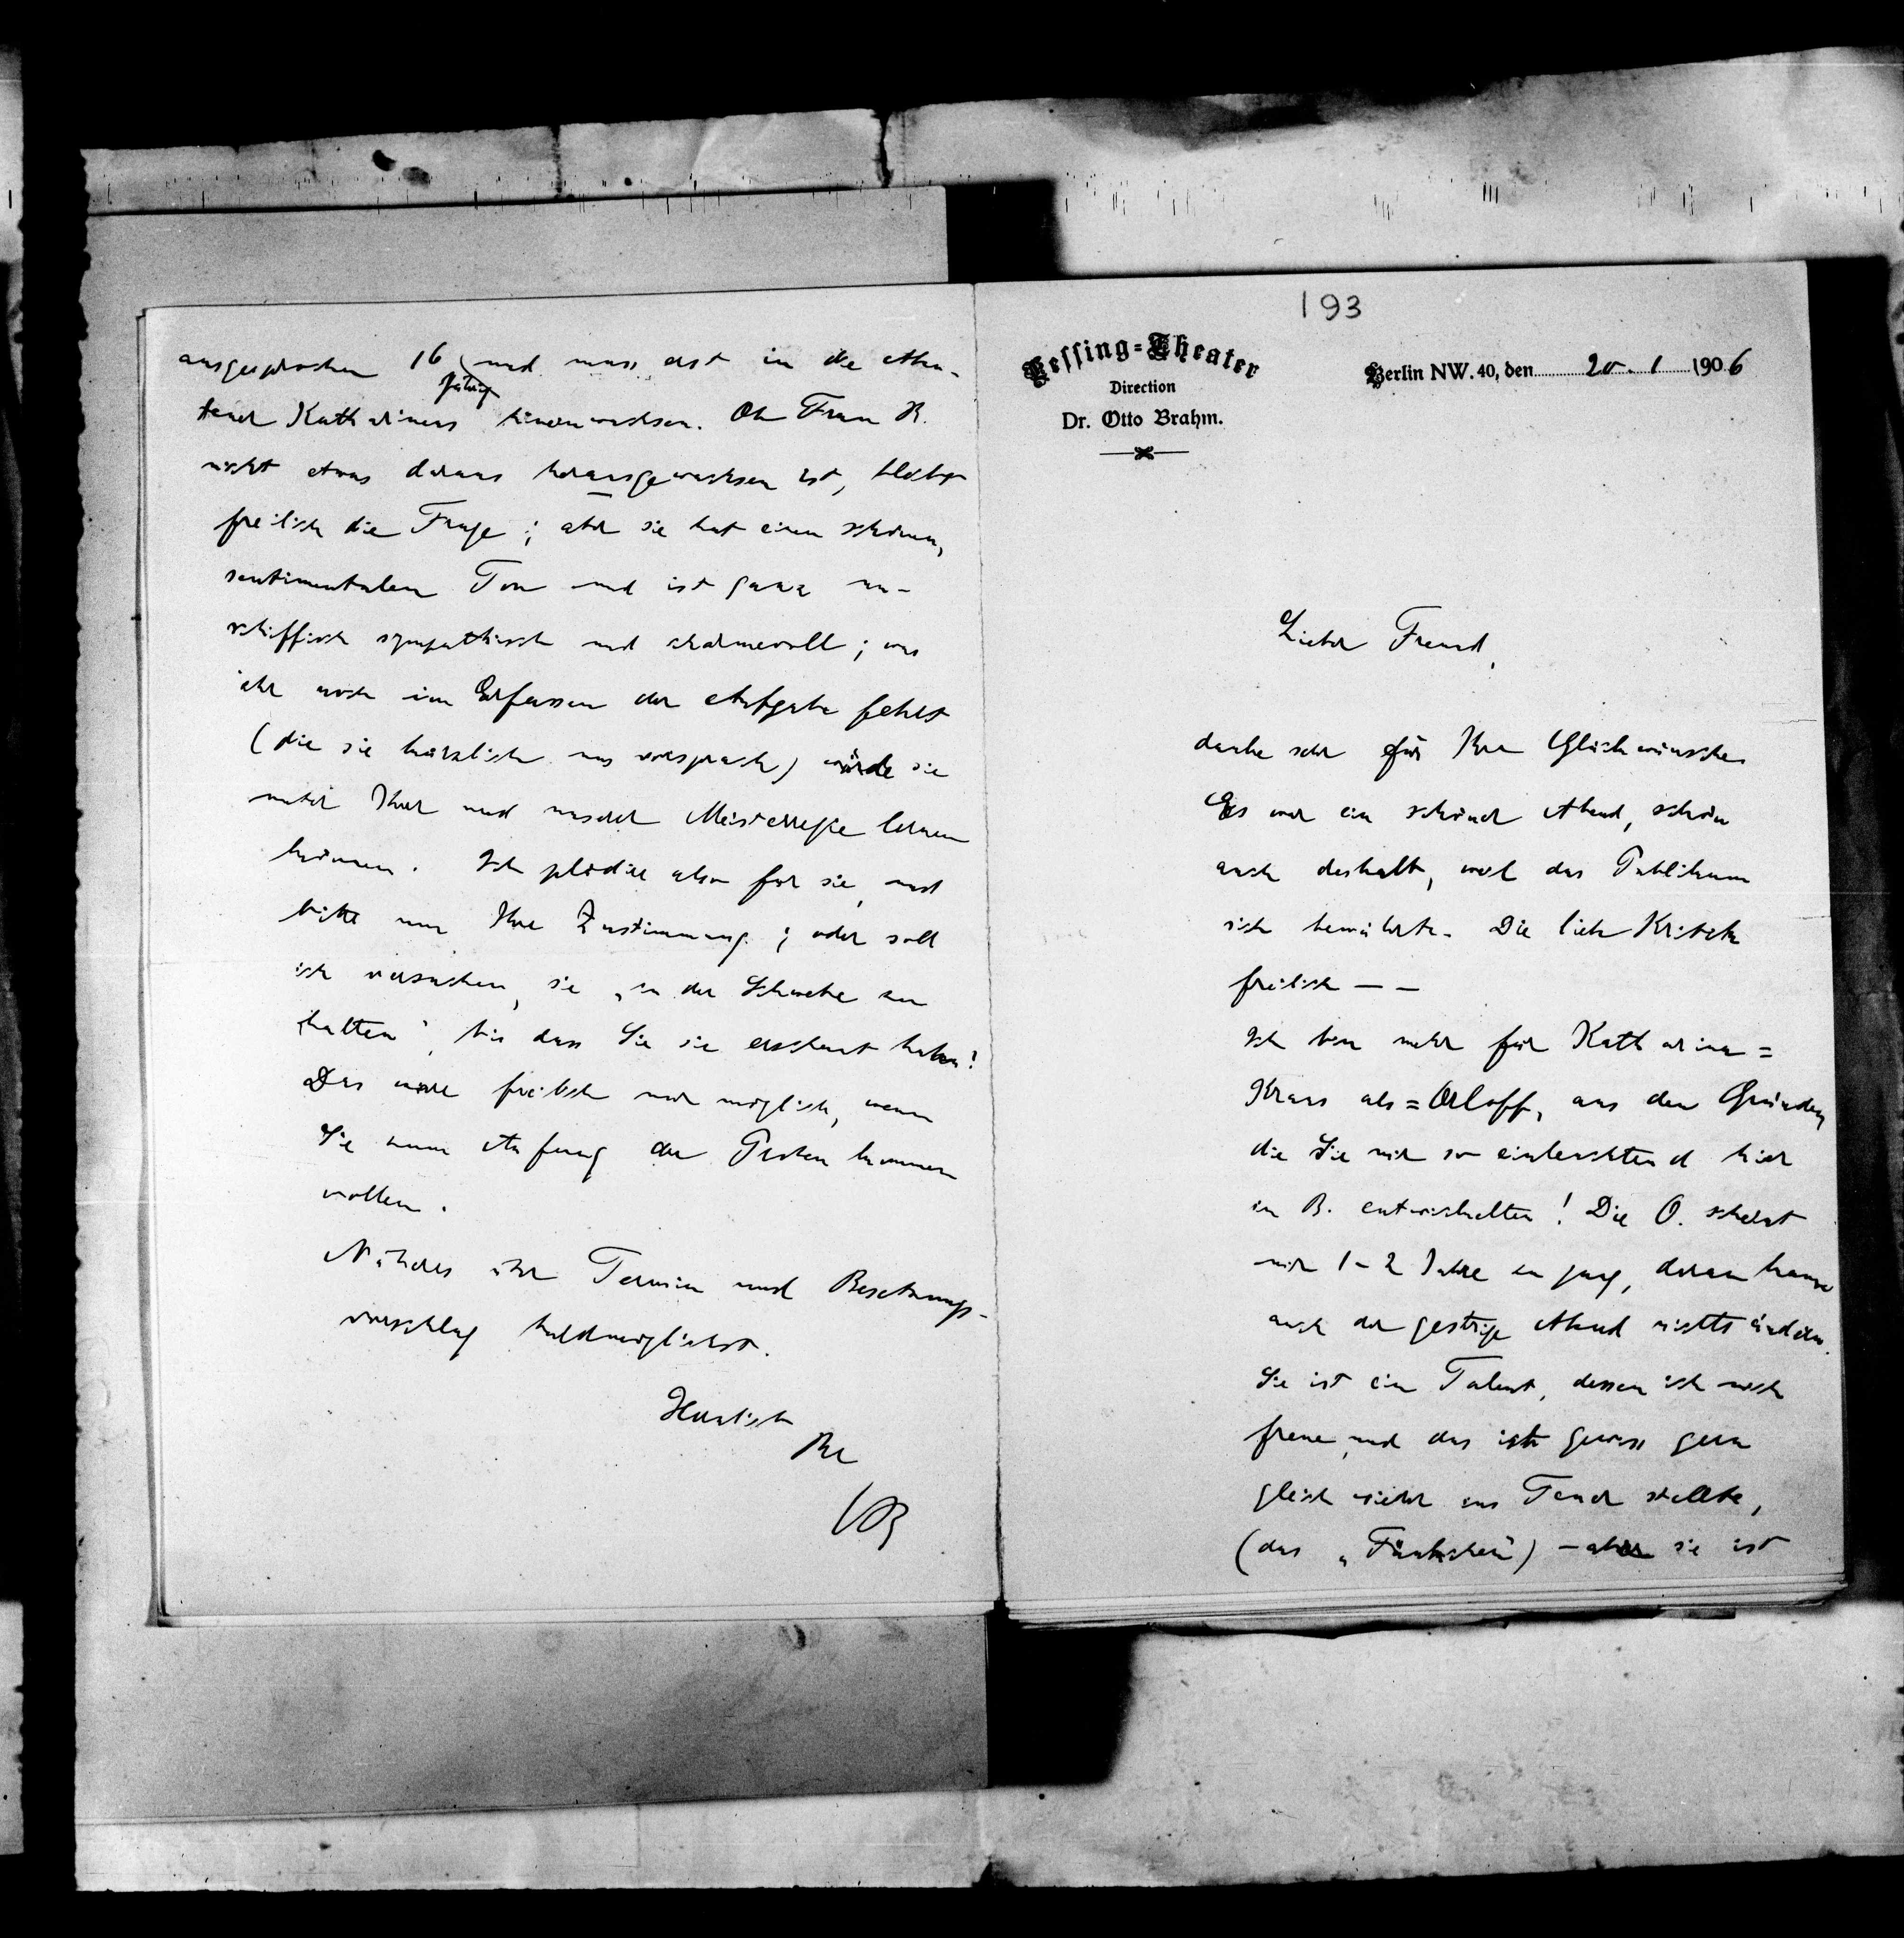 193
Lessing-Theater
Direction
Dr. Otto Brahm.
Berlin NW. 40, den 20. 1 1906
Lieber Freund,
danke sehr für Ihre Glückwünsche.
Es war ein schöner Abend, schön
auch deshalb, weil das Publikum
sich bewährte. Die liebe Kritik
freilich — —
Ich bin mehr für Katharina=
Kraus als =Orloff, aus den Gründen,
die Sie mir so einleuchtend hier
in B. entwickelten! Die O. scheint
mir 1–2 Jahre zu jung, daran kann
auch der gestrige Abend nichts ändern.
Sie ist ein Talent, dessen ich mich
freue, und das ich gewiss gern
gleich wieder ins Feuer stellte,
(das „Fünkchen") — aber sie ist
ausgesprochen 16
jährig
und muss erst in die Aben-
teuer Katharinens hineinwachsen. Ob Frau K.
nicht etwas daraus herausgewachsen ist, bleibt
freilich die Frage; aber sie hat einen schönen,
sentimentalen Ton und ist ganz un-
schiffisch sympathisch und charmevoll; was
ihr noch im Erfassen der Aufgabe fehlt
(die sie kürzlich uns vorsprach) würde sie
unter Ihrer und unserer Meisterregie lernen
können. Ich plädire also für sie, und
bitte um Ihre Zustimmung; oder soll
ich versuchen, sie „in der Schwebe zu
halten", bis dass Sie sie erschaut haben!
Das wäre freilich nur möglich, wenn
Sie zum Anfang der Proben kommen
wollen.
Näheres über Termin und Besetzungs-
vorschlag baldmöglichst.
Herzlich
Ihr
OB